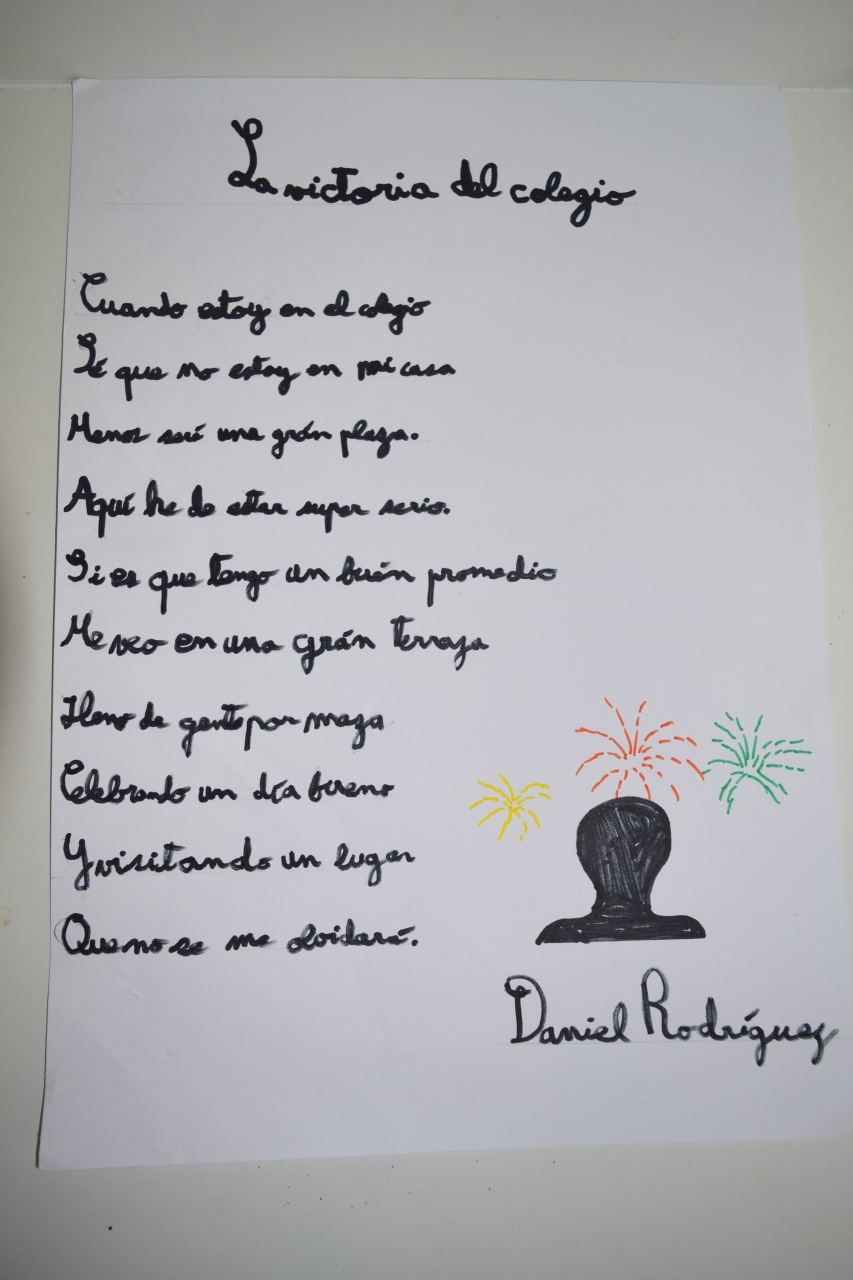 La victoria del colegio
Cuando estoy en el colegio
Sé que no estoy en mi casa
Menos será una grán plaza.
Aquí he de estar super serio.
Si es que tengo un buén promedio
Me veo en una grán terraza
Lleno de gente por maza
Celebrando un día bueno
Y visitando un lugar
Que no se me olvidará.
Daniel Rodríguez